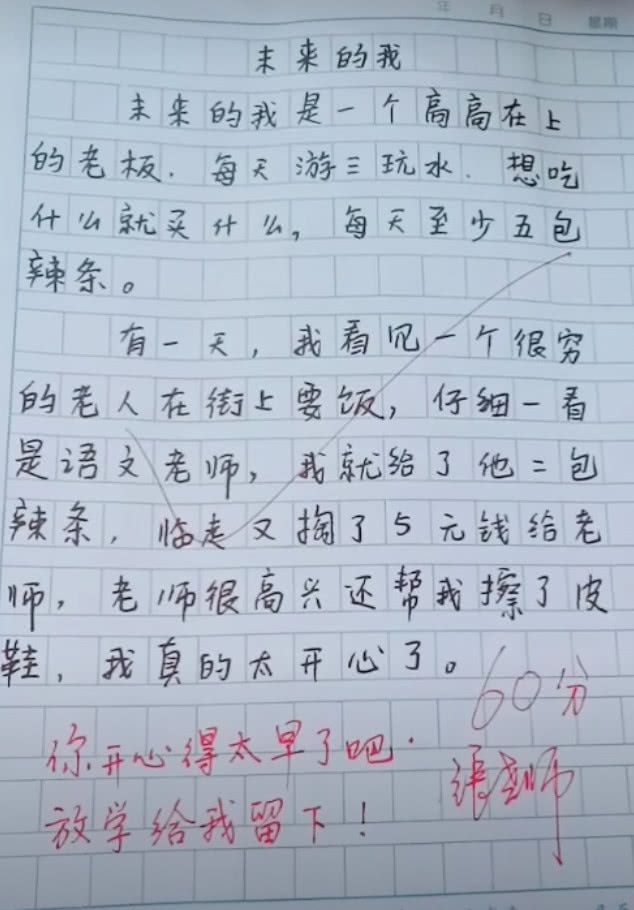 年 月 日 星期
未来的我
未来的我是一个高高在上
的老板. 每天游三玩水. 想吃
什么就买什么, 每天至少五包
辣条。
有一天, 我看见一个很穷
的老人在街上要饭, 仔细一看
是语文老师, 我就给了他二包
辣条, 临走又掏了5元钱给老
师, 老师很高兴还帮我擦了皮
鞋, 我真的太开心了。
60分
你开心得太早了吧.
张老师
放学给我留下!